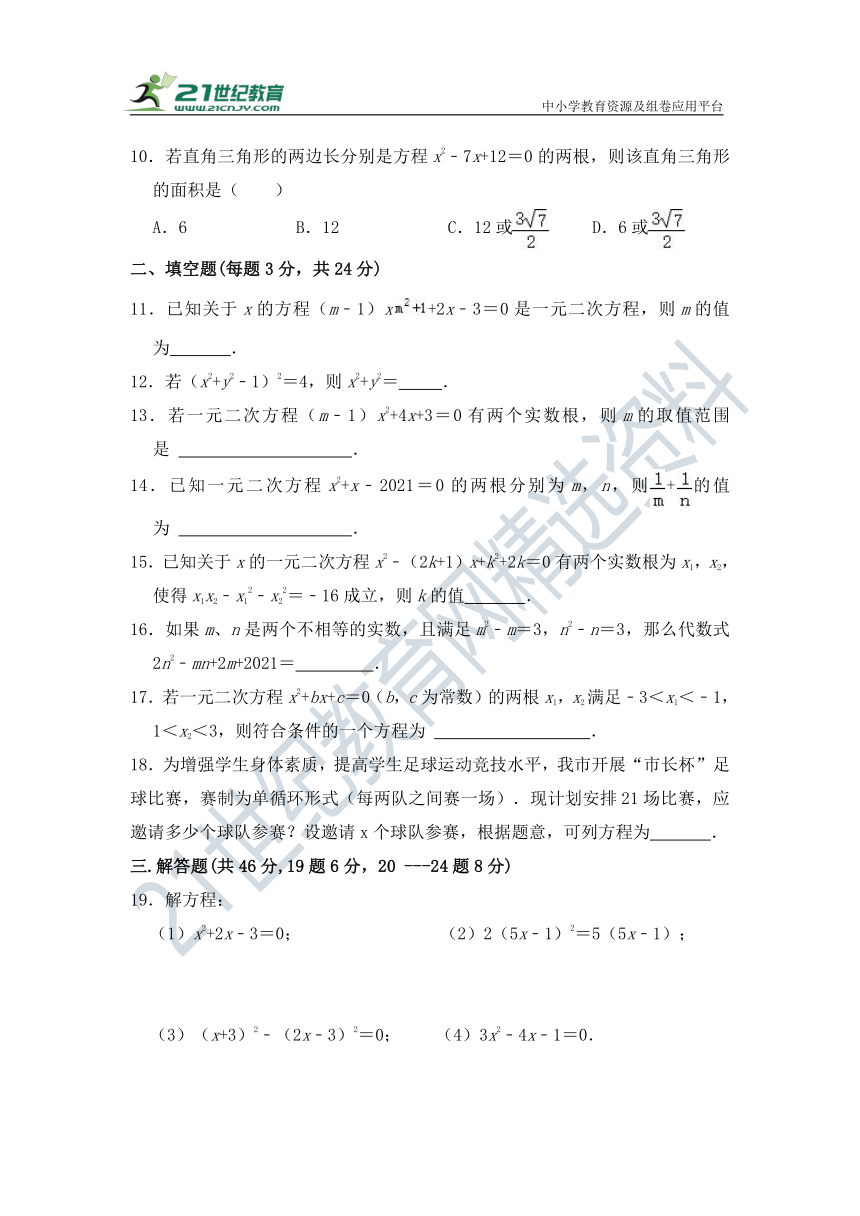 21世纪教育
WWW.21CNJY.COM
中小学教育资源及组卷应用平台
10．若直角三角形的两边长分别是方程x²﹣7x+12＝0的两根，则该直角三角形
的面积是（　　）
A．6　B．12　C．12或3√7/2　D．6或3√7/2
二、填空题(每题3分，共24分)
11．已知关于x的方程（m﹣1）x^(m²+1)+2x﹣3＝0是一元二次方程，则m的值
为______．
12．若（x²+y²﹣1）²＝4，则x²+y²＝____．
13．若一元二次方程（m﹣1）x²+4x+3＝0有两个实数根，则m的取值范围
是 ________________．
14．已知一元二次方程x²+x﹣2021＝0的两根分别为m，n，则1/m+1/n的值
为 ________________．
15．已知关于x的一元二次方程x²﹣（2k+1）x+k²+2k＝0有两个实数根为x₁，x₂，
使得x₁x₂﹣x₁²﹣x₂²＝﹣16成立，则k的值______．
16．如果m、n是两个不相等的实数，且满足m²﹣m＝3，n²﹣n＝3，那么代数式
2n²﹣mn+2m+2021＝________．
17．若一元二次方程x²+bx+c＝0（b，c为常数）的两根x₁，x₂满足﹣3＜x₁＜﹣1，
1＜x₂＜3，则符合条件的一个方程为 ________________．
18．为增强学生身体素质，提高学生足球运动竞技水平，我市开展“市长杯”足
球比赛，赛制为单循环形式（每两队之间赛一场）．现计划安排21场比赛，应
邀请多少个球队参赛？设邀请x个球队参赛，根据题意，可列方程为______．
三.解答题(共46分,19题6分，20 ---24题8分)
19．解方程：
（1）x²+2x﹣3＝0；　（2）2（5x﹣1）²＝5（5x﹣1）；
（3）（x+3）²﹣（2x﹣3）²＝0；　（4）3x²﹣4x﹣1＝0．
21世纪教育网精选资料